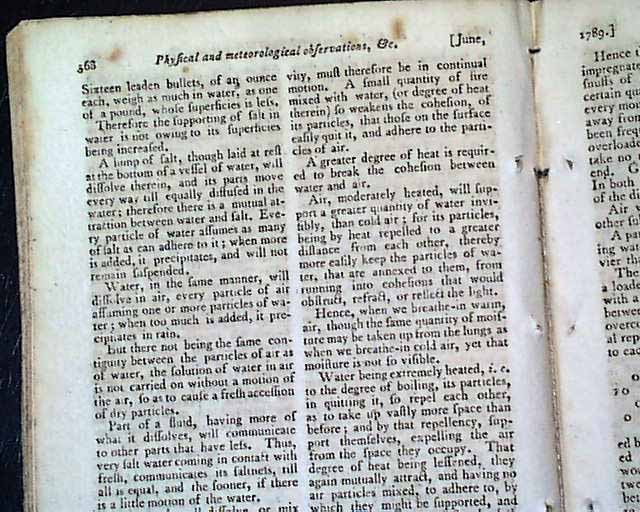 568
Phyſical and meteorological obſervations, &c.
[June,
Sixteen leaden bullets, of an ounce
each, weigh as much in water, as one
of a pound, whoſe ſuperficies is leſs.
Therefore the ſupporting of ſalt in
water is not owing to its ſuperficies
being increaſed.
A lump of ſalt, though laid at reſt
at the bottom of a veſſel of water, will
diſſolve therein, and its parts move
every way till equally diffuſed in the
water; therefore there is a mutual at-
traction between water and ſalt. Eve-
ry particle of water aſſumes as many
of ſalt as can adhere to it; when more
is added, it precipitates, and will not
remain ſuſpended.
Water, in the ſame manner, will
diſſolve in air, every particle of air
aſſuming one or more particles of wa-
ter; when too much is added, it pre-
cipitates in rain.
But there not being the ſame con-
tiguity between the particles of air as
of water, the ſolution of water in air
is not carried on without a motion of
the air, ſo as to cauſe a freſh acceſſion
of dry particles.
Part of a fluid, having more of
what it diſſolves, will communicate
to other parts that have leſs. Thus,
very ſalt water coming in contact with
freſh, communicates its ſaltneſs, till
all is equal, and the ſooner, if there
is a little motion of the water.
diſſolve, or mix
vity, muſt therefore be in continual
motion. A ſmall quantity of fire
mixed with water, (or degree of heat
therein) ſo weakens the coheſion, of
its particles, that thoſe on the ſurface
eaſily quit it, and adhere to the parti-
cles of air.
A greater degree of heat is requir-
ed to break the coheſion between
water and air.
Air, moderately heated, will ſup-
port a greater quantity of water invi-
ſibly, than cold air; for its particles,
being by heat repelled to a greater
diſtance from each other, thereby
more eaſily keep the particles of wa-
ter, that are annexed to them, from
running into coheſions that would
obſtruct, refract, or reflect the light.
Hence, when we breathe in warm
air, though the ſame quantity of moiſ-
ture may be taken up from the lungs as
when we breathe-in cold air, yet that
moiſture is not ſo viſible.
Water being extremely heated, i. e.
to the degree of boiling, its particles,
in quitting it, ſo repel each other,
as to take up vaſtly more ſpace than
before; and by that repellency, ſup-
port themſelves, expelling the air
from the ſpace they occupy. That
degree of heat being leſſened, they
again mutually attract, and having no
air particles mixed, to adhere to, by
which they might be ſupported, and
1789.]
Hence
impregnate
ſnuffs of
certain qu
every mo
away from
been freq
overloade
take no
end. G
In both
of the di
Air v
other ſu
A pa
ing w
vier tha
The
a loade
with
betwe
overc
al rep
to ca